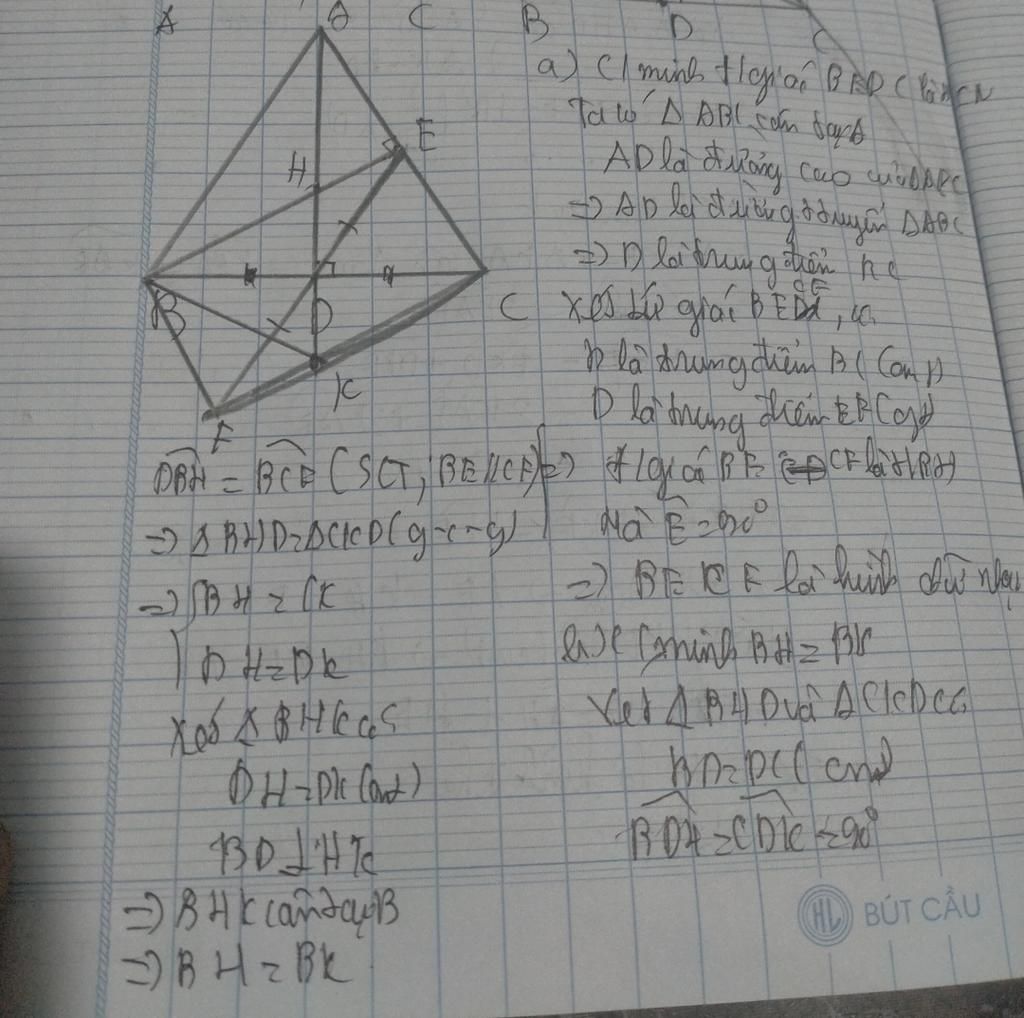 A
A
C
B
D
C
E
H
B
D
C
K
F
a) C/minh t/giác BEDC là hCN
Ta có Δ ABC cân tại A
AD là đường cao của ΔABC
=> AD là đường t tuyến ΔABC
=> D là trung điểm BC
Xét tứ giác BE CF, có
D là trung điểm BC (cmt)
D là trung điểm EF (gt)
=> t/giác BE CF là HBH
Mà Ê = 90°
=> BECF là hình chữ nhật
b) C/minh BH = BK
Xét Δ BHD và Δ CKD có
BD = DC (cmt)
BDH = CDK = 90°
DBH = BCF (SLT, BE//CF)
=> Δ BHD = Δ CKD (g-c-g)
=> BH = CK
DH = DK
Xét Δ BHK có
DH = DK (cmt)
BD ⊥ HK
=> BHK cân tại B
=> BH = BK
HL BÚT CẦU